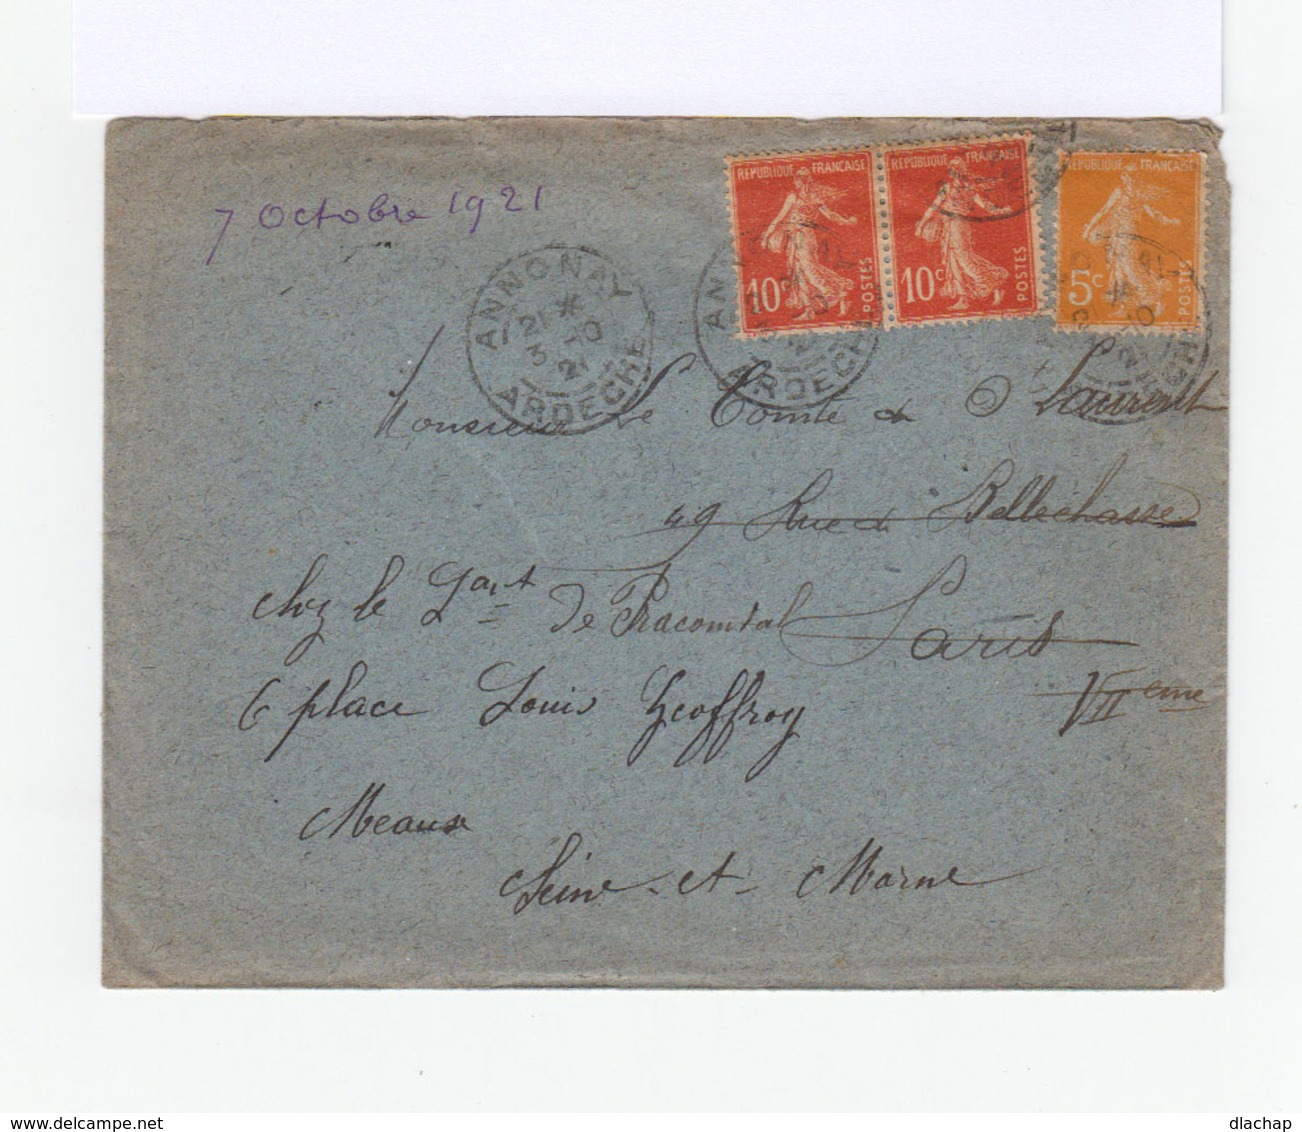 7 Octobre 1921
REPUBLIQUE FRANÇAISE
10c
POSTES
REPUBLIQUE FRANÇAISE
10c
POSTES
REPUBLIQUE FRANÇAISE
5c
POSTES
ANNONAY
21 *
3 10
21
ARDECHE
ARDECHE
Monsieur le Comte de Laurent
49 Rue de Bellechasse
Paris
VII eme
chez le Lant de Pracomtal
6 place Louis Geoffroy
Meaux
Seine-et-Marne
delcampe.net
dlachap